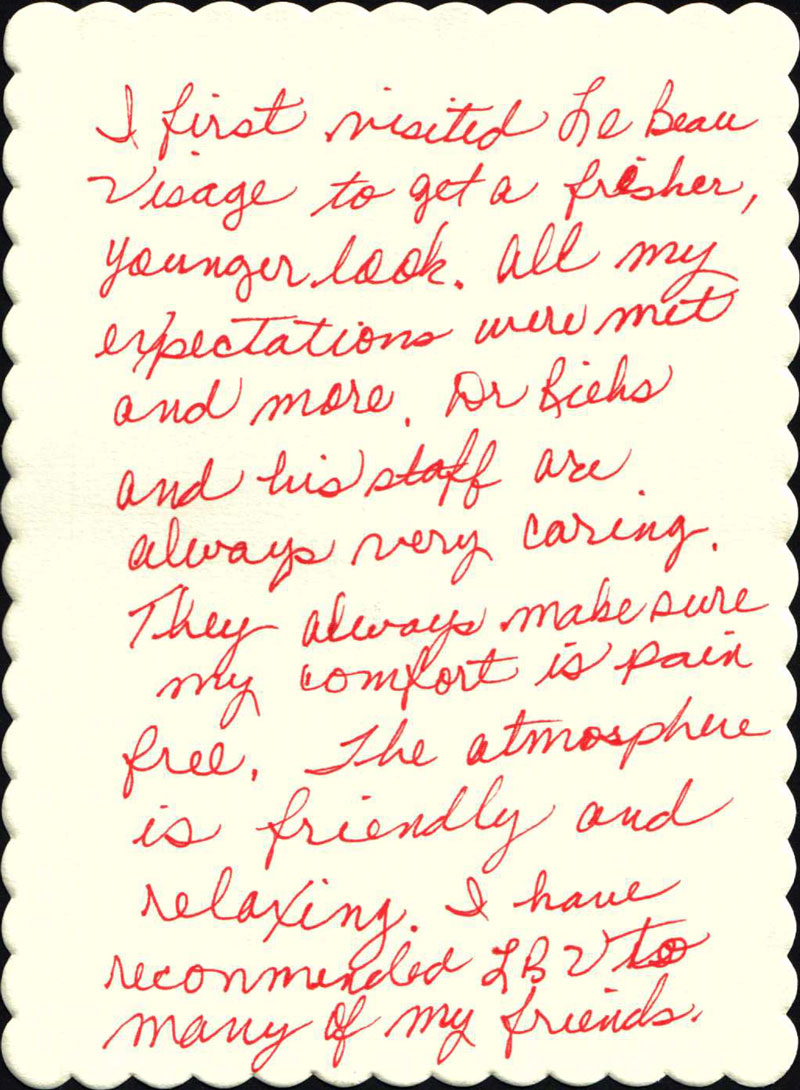 I first visited Le Beau
Visage to get a fresher,
younger look. All my
expectations were met
and more. Dr Riehs
and his staff are
always very caring.
They always make sure
my comfort is pain
free. The atmosphere
is friendly and
relaxing. I have
recommended LBV to
many of my friends.